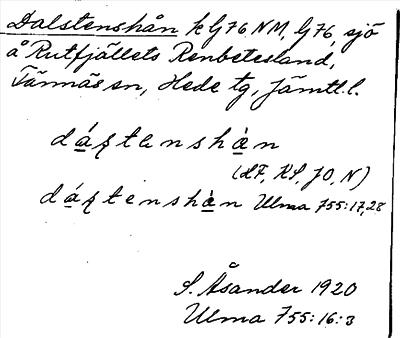 Dalstenshån k G76 NM, G76, sjö
å Rutfjällets Renbetesland,
Tännäs sn, Hede tg, Jämtl.l.
dáꞎtenshàn
(LF, KS, JO, N)
dáꞎtenshàn Ulma 755:17,28
S. Åsander 1920
Ulma 755:16:3